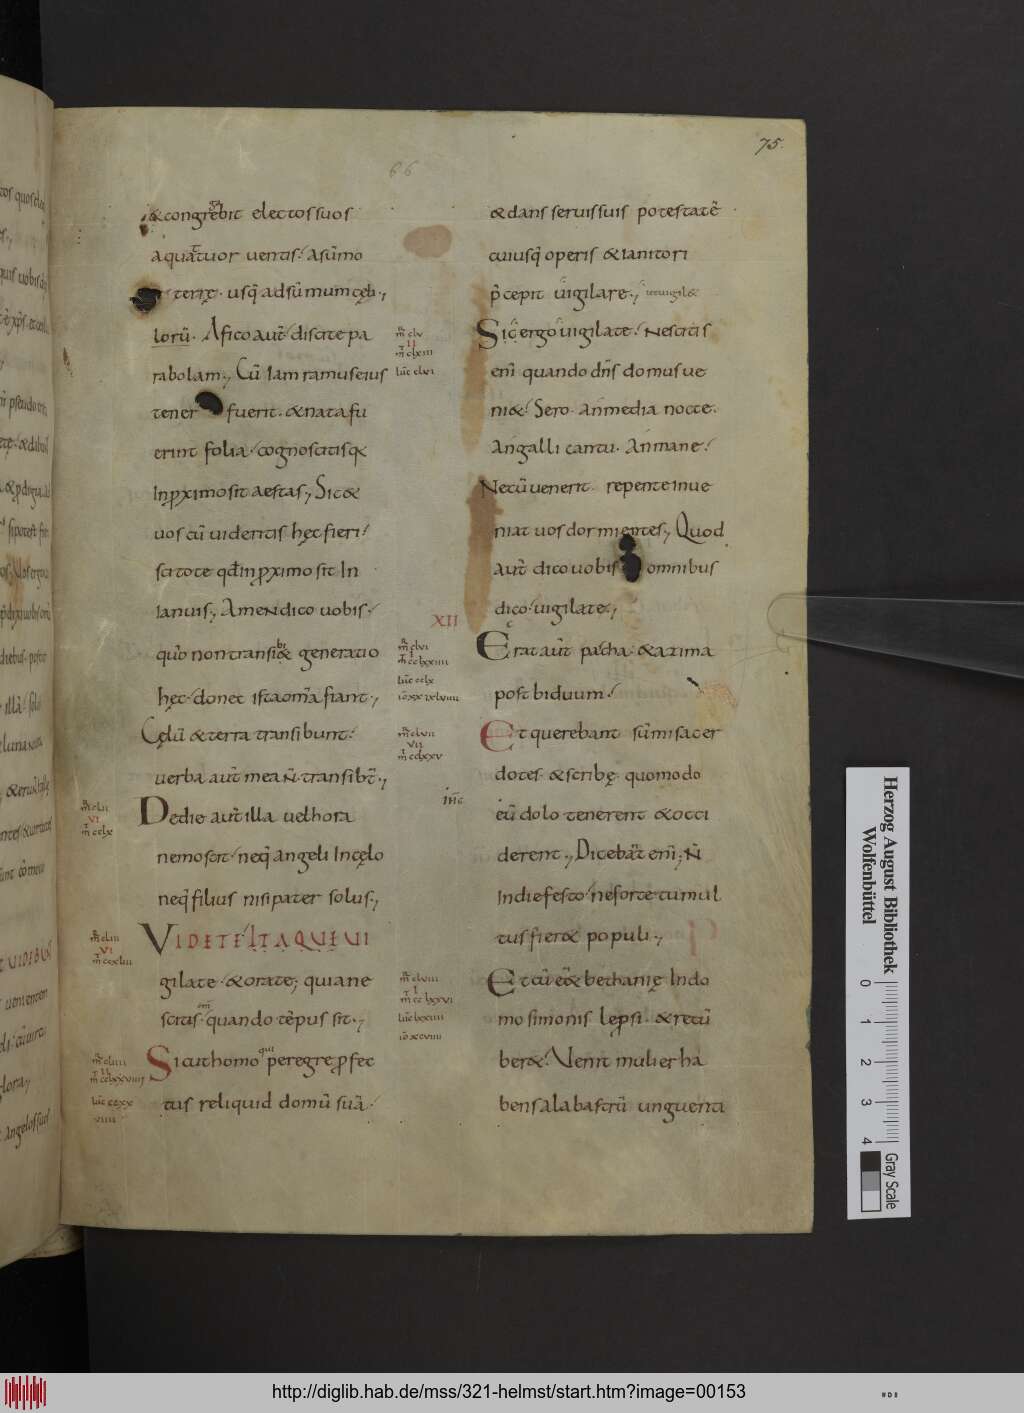 75.
66
& congregabit electos suos
a quattuor uentis. asũmo
terrę. usq; ad sũmum cęli,
lorũ. A fico aut̃ discite pa
rabolam; Cũ iam ramus eius
tener fuerit. & nata fu
erint folia. cognoscitis q̃
In ꝓximo sit aestas; Sic &
uos cũ uideritis hęc fieri.
scitote qđ in ꝓximo sit In
ianuis; Amen dico uobis.
qm̃ non transibi& generatio
hęc. donec ista om̃a fiant;
Cęlũ & terra transibunt.
uerba aut̃ mea ñ transibt̃;
De die aut̃ illa uel hora
nemo scit. neq; angeli In cęlo
neq; filius nisi pater solus;
VIDETE ITAQUE UI
gilate. & orate; quia ne
scitis quando tẽpus sit;
Sicut homo qui peregre ꝓfec
tus reliquid domũ suã.
& dans seruis suis potestatẽ
cuiusq; operis & ianitori
p̃cepit uigilare; ut uigil&
Sic ergo uigilate. Nescitis
enĩ quando dñs domus ue
ni&. Sero. an media nocte.
An galli cantu. An mane.
Ne cũ uenerit repente inue
niat uos dormientes; Quod
aut̃ dico uobis omnibus
dico. uigilate;
XII
Erat aut̃ pascha. & azima
post biduum.
Et querebant sũmi sacer
dotes. & scribę. quomodo
eũ dolo tenerent & occi
derent; Dicebãt enĩ; Ñ
In die festo. ne forte tumul
tus fier& populi;
Et cũ eẽt bethanię In do
mo simonis leprosi. & recũ
ber&. Venit mulier ha
bens alabastrũ unguenti
Herzog August Bibliothek
Wolfenbüttel
0 1 2 3 4
Gray Scale
http://diglib.hab.de/mss/321-helmst/start.htm?image=00153